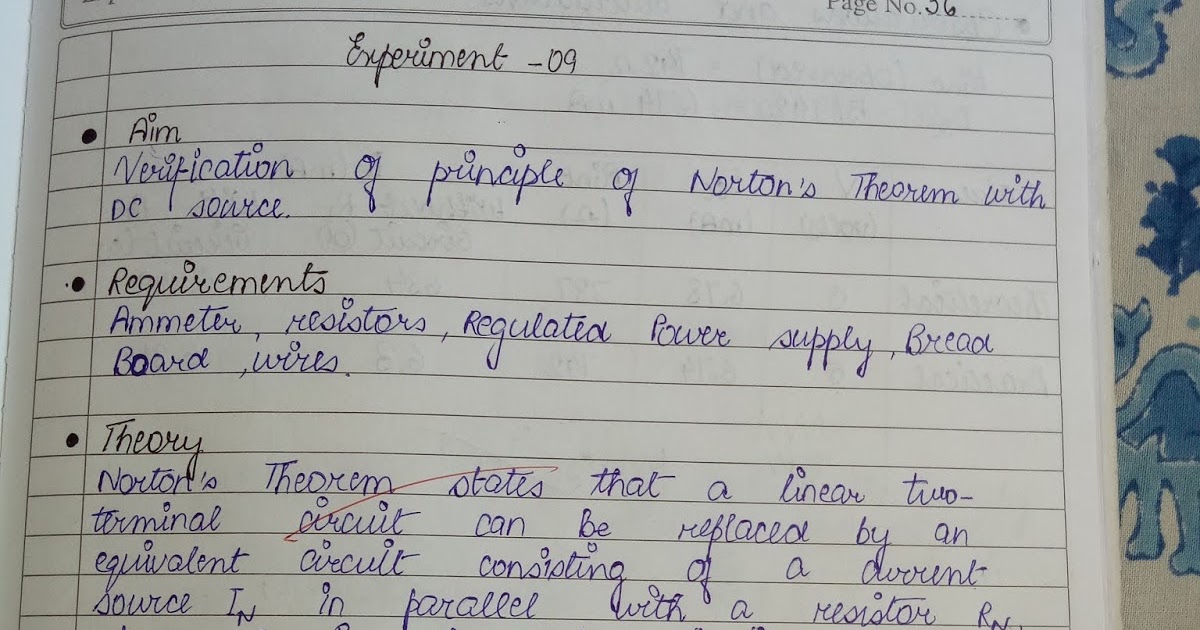 Page No. 36
Experiment - 09
Aim
Verification of principle of Norton's Theorem with
DC source.
Requirements
Ammeter, resistors, Regulated Power supply, Bread
Board, wires.
Theory
Norton's Theorem states that a linear two-
terminal circuit can be replaced by an
equivalent circuit consisting of a current
source IN in parallel with a resistor RN,